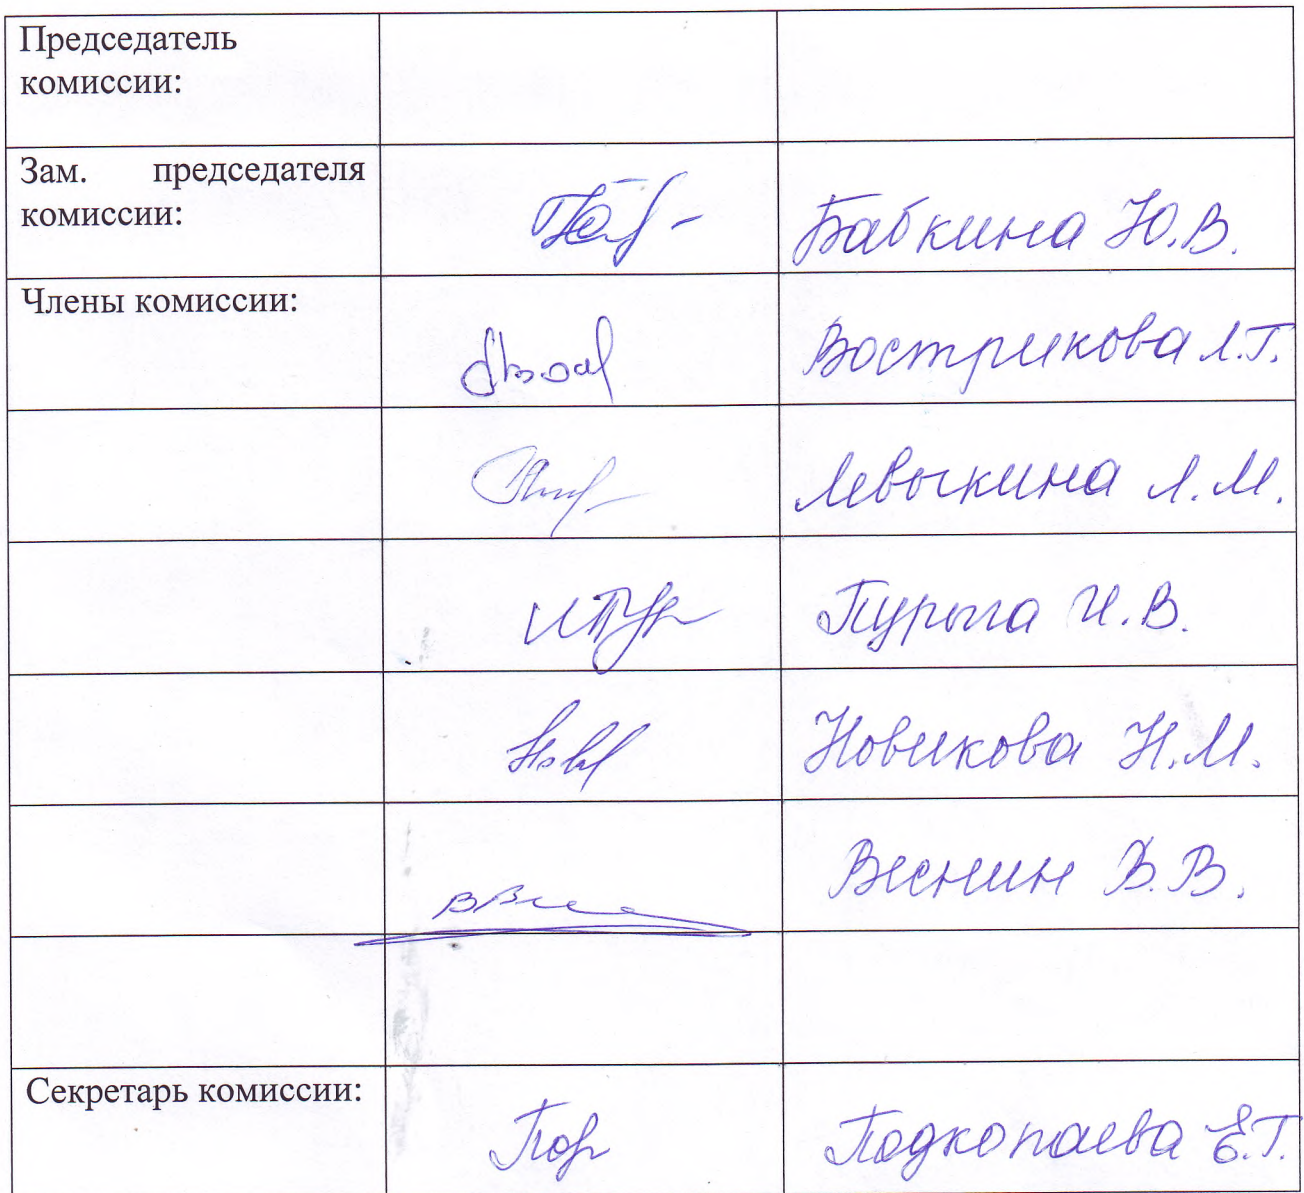 Председатель
комиссии:
Зам. председателя
комиссии:
Бабкина Ю.В.
Члены комиссии:
Вострикова Л.Г.
Левыкина Л.М.
Пурыга И.В.
Новикова Н.М.
Веснин В.В.
Секретарь комиссии:
Подкопаева Е.Г.